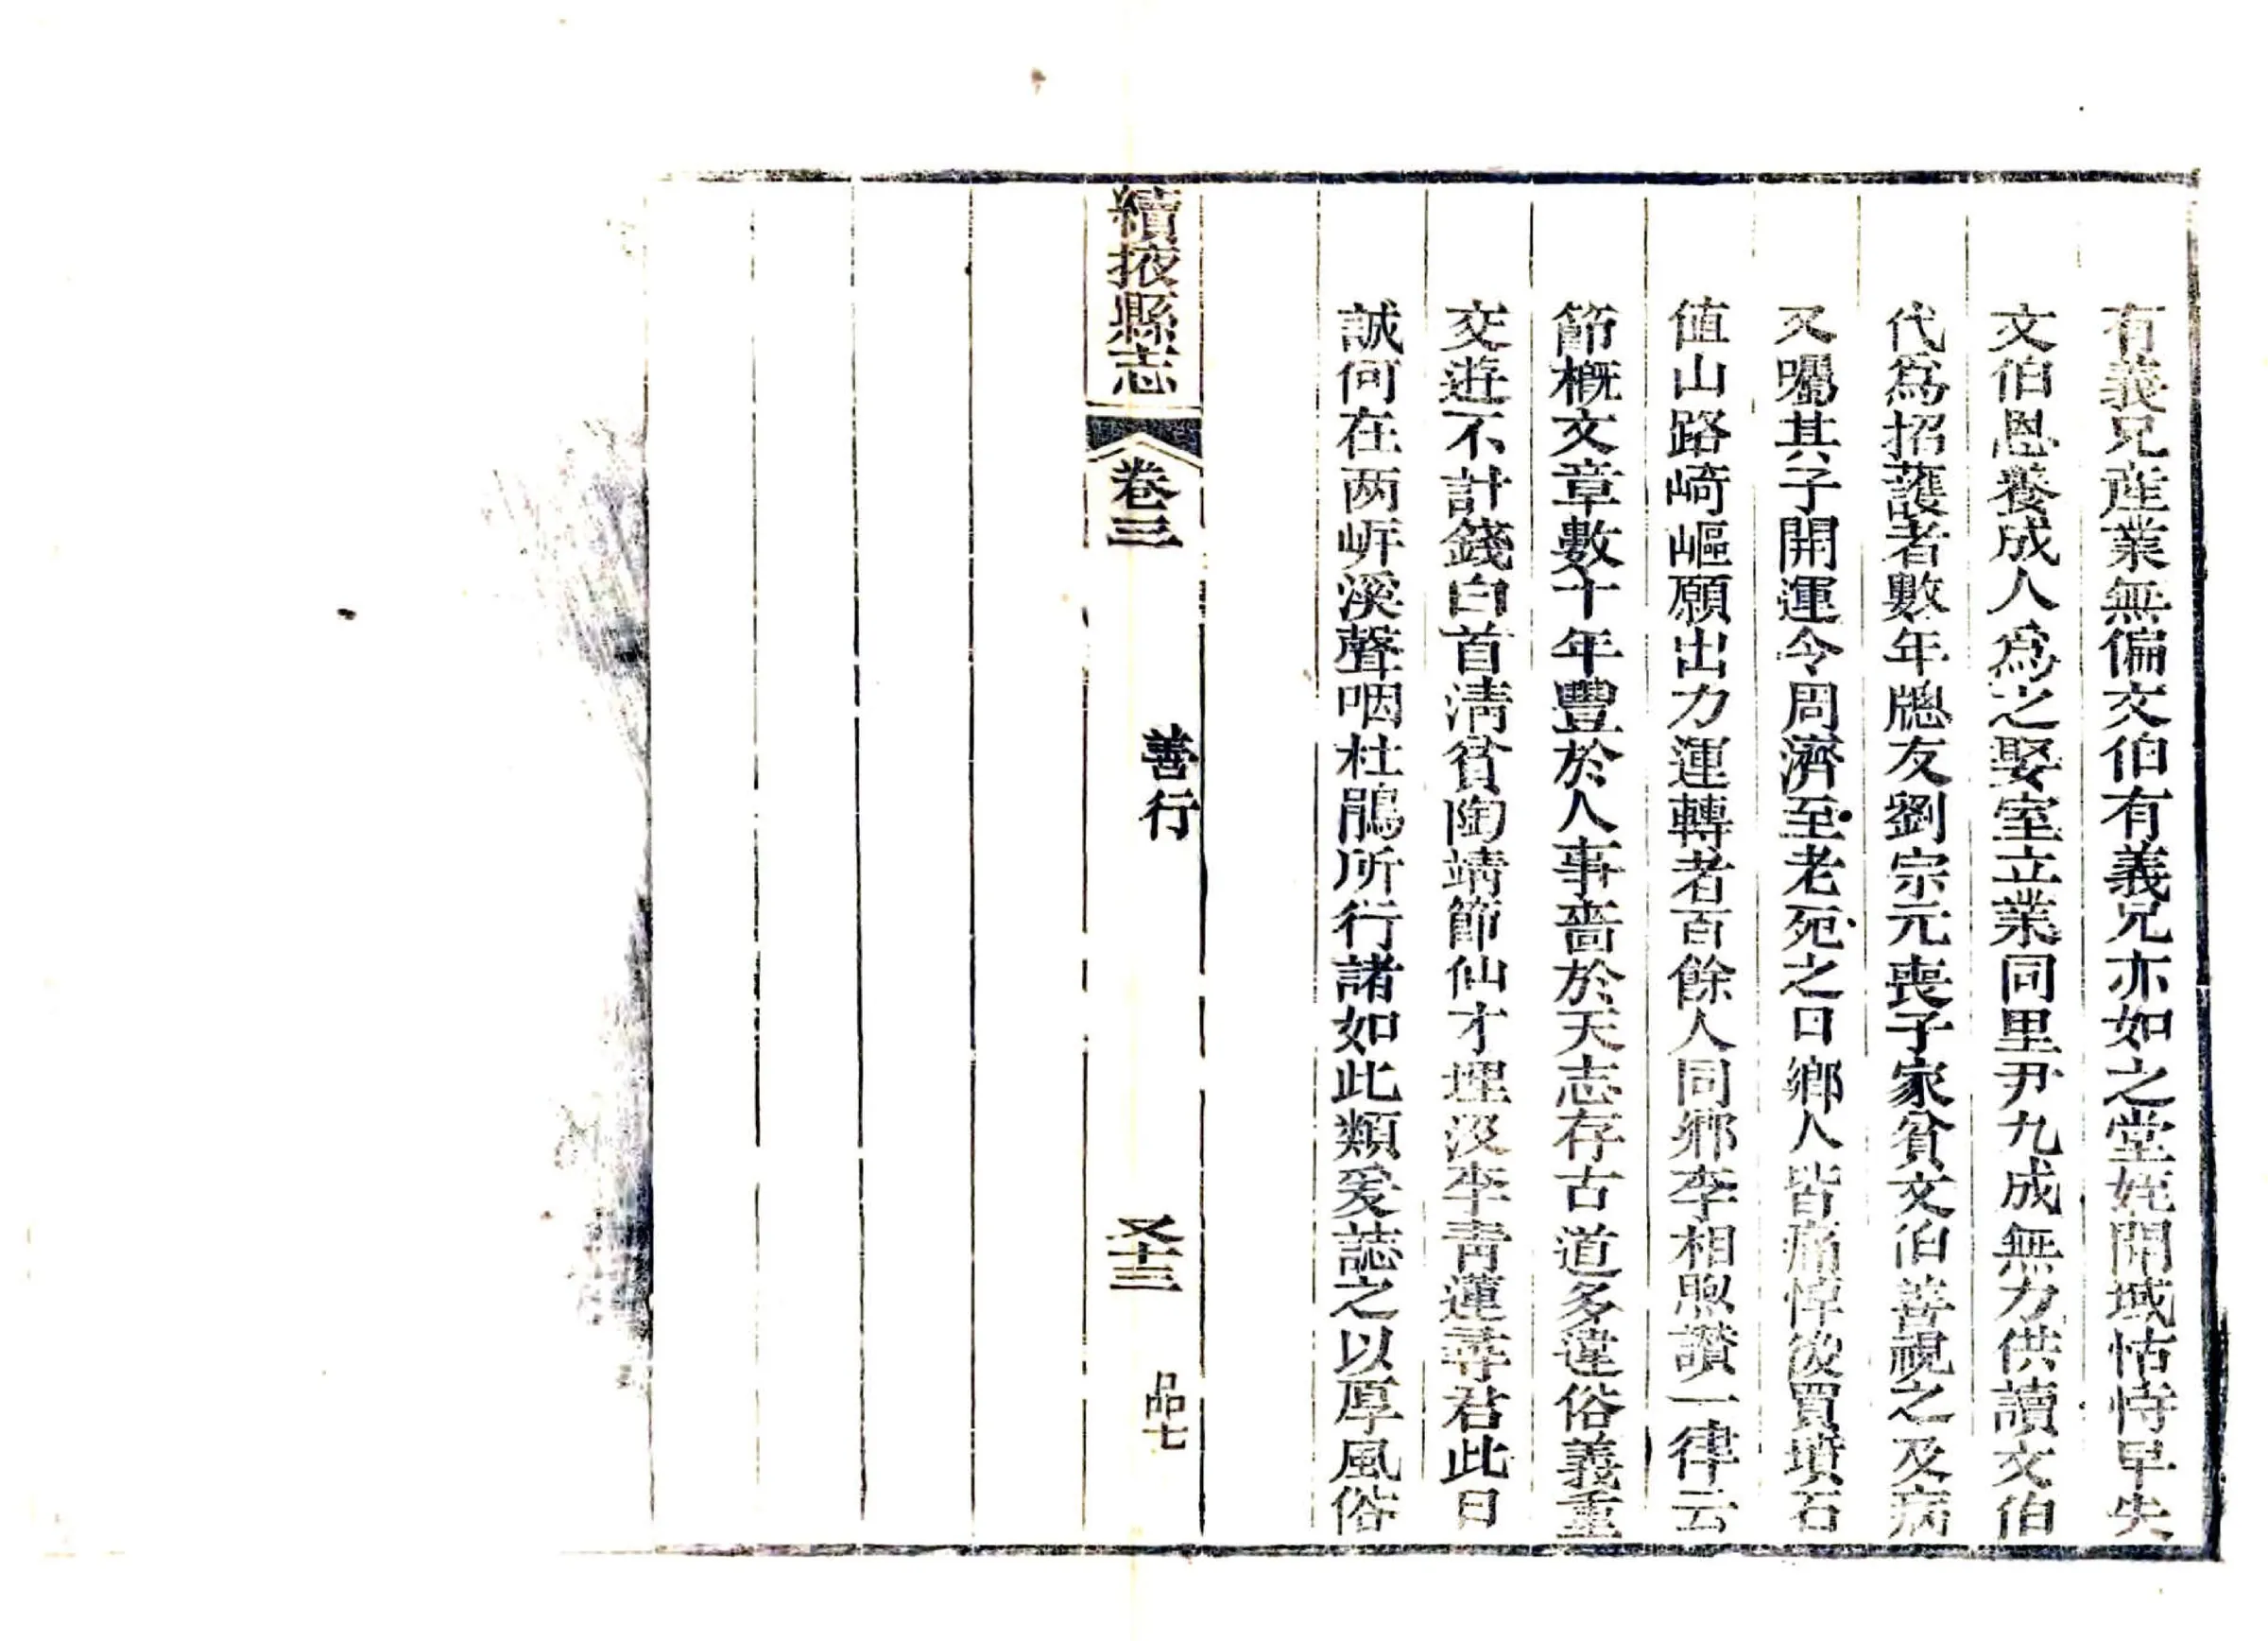 有義兄産業無偏文伯有義兄亦如之堂姪開域怙恃早失
文伯恩養成人為之娶室立業同里尹九成無力供讀文伯
代為招護者數年牕友劉宗元喪子家貧文伯善視之及病
又囑其子開運令周濟至老死之日鄉人皆痛悼後買墳石
值山路崎嶇願出力運轉者百餘人同鄉李相煦讃一律云
節概文章數十年豐於人事嗇於天志存古道多違俗義重
交遊不計錢白首清貧陶靖節仙才埋没李青蓮尋君此日
誠何在两岍溪聲咽杜鵑所行諸如此類爰誌之以厚風俗
續掖縣志
卷三
善行
又十三
品七